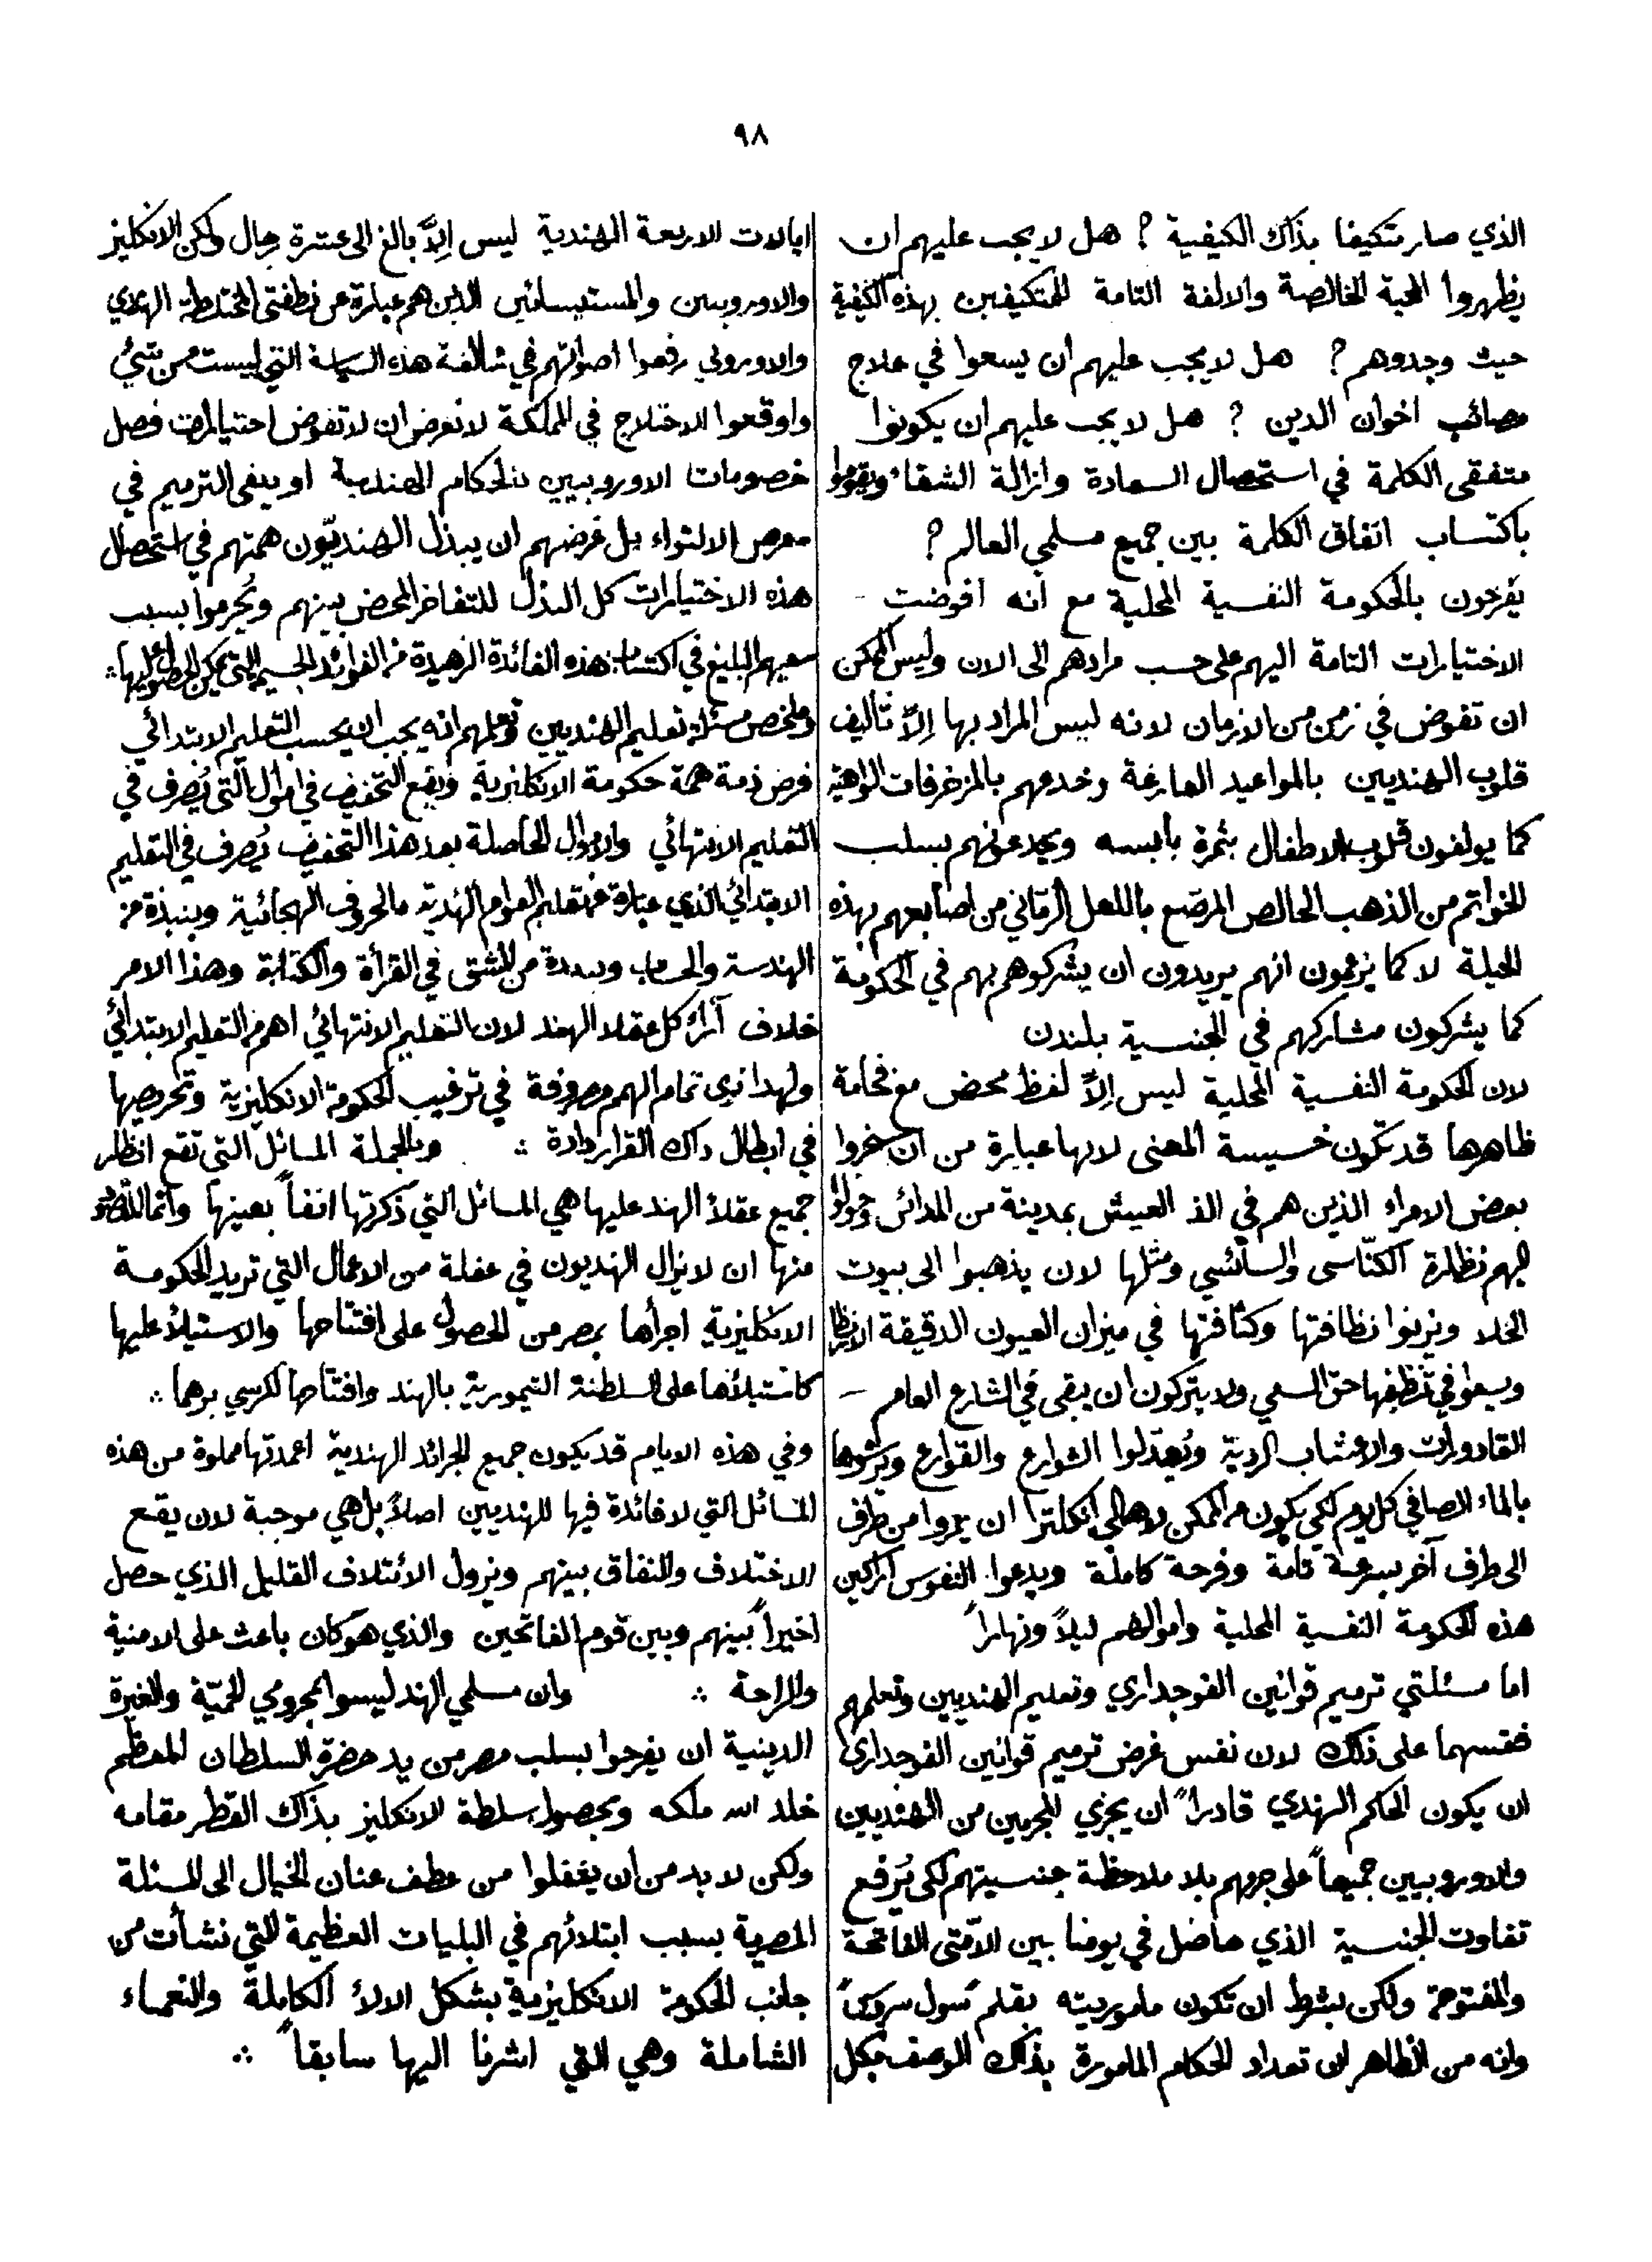 ٩٨
الذي صار متكيفا بذاك الكيفية ? هل لا يجب عليهم ان
يظهروا المحبة الخالصة والالفة التامة للمتكيفين بهذه الكيفية
حيث وجدوهم ? هل لا يجب عليهم ان يسعوا في علاج
مصائب اخوان الدين ? هل لا يجب عليهم ان يكونوا
متفقى الكلمة في استحصال السعادة وازالة الشقاء ويقوموا
باكتساب اتفاق الكلمة بين جميع مسلمي العالم ?
يفرحون بالحكومة النفسية المحلية مع انه افوضت
الاختيارات التامة اليهم على حسب مرادهم الى الان وليس الممكن
ان تفوض في زمن من الازمان لانه ليس المراد بها الاّ تأليف
قلوب الهنديين بالمواعيد الفارغة وخدعهم بالمزخرفات الواهية
كما يولفون قلوب الاطفال بثمرة يابسه ويخدعونهم بسلب
الخواتم من الذهب الخالص المرصّع باللعل الرمّاني من اصابعهم بهذه
الحيلة لا كما يزعمون انهم يريدون ان يشركوهم بهم في الحكومة
كما يشركون مشاركهم في الجنسية بلندن
لان الحكومة النفسية المحلية ليس الاّ لفظ محض مع فخامة
ظاهرها قد تكون خسيسة المعنى لانها عبارة من ان
بعض الامراء الذين هم في الذ العيش بمدينة من المدائن
اليهم نظارة الكنّاسى والسائسي ومثلها لان يذهبوا الى بيوت
الخلا ويزنوا نظافتها وكثافتها في ميزان العيون الدقيقة الانظار
ويسعوا في تنظيفها حق السعي ولا يتركون ان يبقى في الشارع العام
القاذورات والاعشاب الردية ويُعدّلوا الشوارع والقوارع ويرشوها
بالماء الصافي كل يوم لكي يكون من الممكن لاهالي انكلترا ان يمروا من طرف
الى طرف آخر بسرعة تامة وفرحة كاملة ويدعوا النفوس
هذه الحكومة النفسية المحلية واموالهم ليلاً ونهاراً
اما مسئلتي ترميم قوانين الفوجداري وتعليم الهنديين وتعلمهم
فقسهما على ذلك لان نفس غرض ترميم قوانين الفوجداري
ان يكون الحاكم الهندي قادراً ان يجزي المجرمين من الهنديين
والاوروبيين جميعاً على جرمهم بلا ملاحظة جنسيتهم لكى يُرفع
تفاوت الجنسية الذي حاصل في يومنا بين الامّتى الفاتحة
والمفتوحة ولكن بشرط ان تكون ماموريته بقلم سول سروس
وانه من الظاهر ان تعداد الحكام المامورة بذاك الوصف بكل
ايالات الاربعة الهندية ليس الاّ بالغ الى عشرة رجال ولكن الانكليز
والاوروبيين الذين هم عبارة من نطفتى المختلطة الهندي
والاوروبي رفعوا اصواتهم في مخالفة هذه السياسة التي ليست من شيُ
واوقعوا الاختلاج في المملكة لا لغرض ان لا تفوض اختيارات فصل
خصومات الاوروبيين للحكام الهندية او يبقى الترميم في
معرض الالتواء بل غرضهم ان يبذل الهنديّون همتهم في استحصال
هذه الاختيارات كل البذل للتفاخر المحض بينهم ويُحرموا بسبب
سعيهم البليغ في اكتساب هذه الفائدة الزهيدة من الفوائد الجسيمة التي يمكن الحصول اليها ∴
وملخص مسئلة تعليم الهنديين وتعلمهم انه يجب ان يحسب التعليم الابتدائي
فرض ذمة همة حكومة الانكليزية ويقع التخفيف في اموال التى يُصرف في
التعليم الانتهائي والاموال الحاصلة بعد هذا التخفيف يُصرف في التعليم
الابتدائي الذي عبارة من تعليم العوام الهندية بالحروف الهجائية وبنبذة من
الهندسة والحساب ومدة من المشق في القرأة والكتابة وهذا الامر
خلاف آراء كل عقلاء الهند لان التعليم الانتهائي اهم من التعليم الابتدائي
ولهذا نرى تمام الهمم مصروفة في ترغيب الحكومة الانكليزية وتحريصها
في ابطال ذاك القرار دادة ∴ وبالجملة المسائل التى تقع انظار
جميع عقلاء الهند عليها هي المسائل التي ذكرتها انفاً بعينها وانما المقصود
منها ان لا يزال الهنديون في غفلة من الاعمال التي تريد الحكومة
الانكليزية اجرأها بمصر من الحصول على افتتاحها والاستيلاء عليها
كاستيلائها على السلطنة التيمورية بالهند وافتتاحها لكرسي برهما ∴
وفي هذه الايام قد يكون جميع الجرائد الهندية اعمدتها مملوة من هذه
المسائل التي لا فائدة فيها للهنديين اصلاً بل هي موجبة لان يقع
الاختلاف والنفاق بينهم ويزول الائتلاف القليل الذي حصل
اخيراً بينهم وبين قوم الفاتحين والذي هو كان باعث على الامنية
والراحة ∴ وان مسلمي الهند ليسوا بمحرومي الحميّة والغيرة
الدينية ان يفرحوا بسلب مصر من يد حضرة السلطان المعظم
خلد الله ملكه وبحصول سلطة الانكليز بذاك القطر مقامه
ولكن لا بد من ان يغفلوا من عطف عنان الخيال الى المسئلة
المصرية بسبب ابتلائهم في البليات العظيمة التي نشأت من
جانب الحكومة الانكليزية بشكل الالاء الكاملة والنعماء
الشاملة وهي التي اشرنا اليها سابقاً ∴